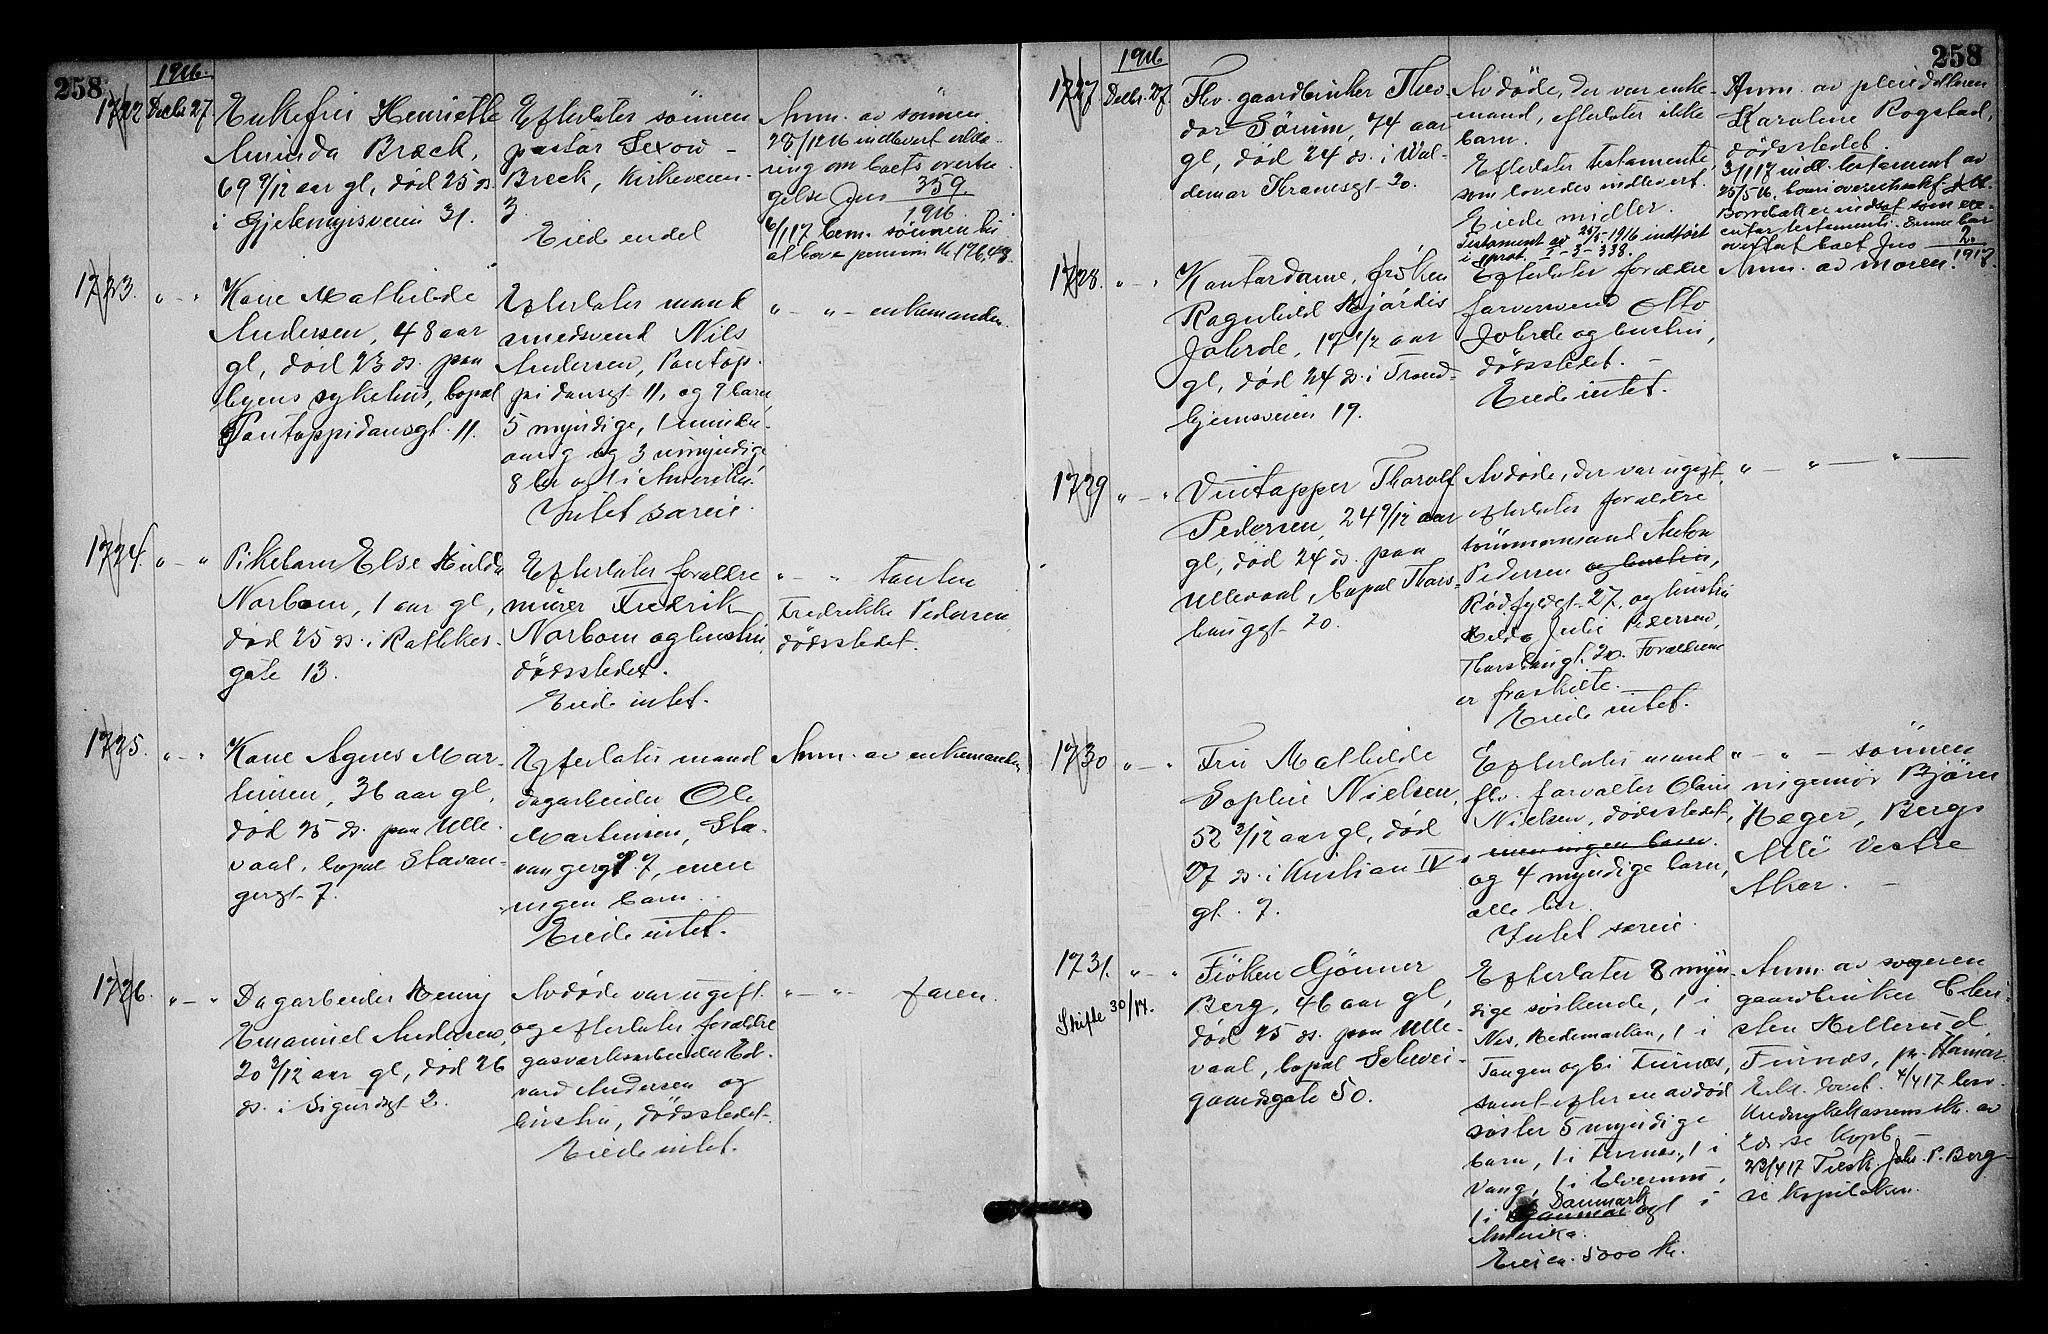 258
1916.
1722 Decbr 27.
Enkefru Henriette
Aminda Bræck,
69 9/12 aar gl, död 25 ds.
i Gjetemyrsveien 31.
Efterlater sönnen
pastor Sexow-
Bræck, Kirkeveien
3.
Eiede endel
Anm. av sönnen.
28/12 16 indlevert erklæ-
ring om boets overta-
gelse Jns 359
1916.
6/1 17 bem. sönnen
at hæve pension Kr 176,48.
1723. " - "
Kone Mathilde
Andersen, 48 aar
gl, död 23 ds. paa
byens sykehus, bopæl
Pontoppidansgt. 11.
Efterlater mand
smedsvend Nils
Andersen, Pontop-
pidansgt 11, og 9 barn,
5 myndige, 1 mindre-
aarig og 3 umyndige
8 her og 1 i Amerika.
Intet særeie.
" - " - enkemanden.
1724. " - "
Pikebarn Else Hulda
Norbom, 1 aar gl,
död 25 ds. i Rathkes-
gate 13.
Efterlater forældre
murer Fredrik
Norbom og hustru,
dödsstedet.
Eiede intet.
" - " tanten
Fredrikke Pedersen,
dödsstedet.
1725. " - "
Kone Agnes Mar-
tinsen, 36 aar gl,
död 25 ds. paa Ulle-
vaal, bopæl Stavan-
gergt 7.
Efterlater mand
dagarbeider Ole
Martinsen, Sta-
vangergt 7, men
ingen barn.
Eiede intet.
Anm. av enkemanden
1726. " - "
Dagarbeider Henry
Emanuel Andersen,
20 2/12 aar gl, död 26
ds. i Sigurdsgt 2.
Avdöde var ugift
og efterlater forældre
gasverksarbeider Ed-
vard Andersen og
hustru, dödsstedet.
Eiede intet.
" - " faren.
258
1916
1727 Decbr. 27.
Fhv. gaardbruker Theo-
dor Sörum, 74 aar
gl, död 24 ds. i Wal-
demar Thranesgt 20.
Avdöde, der var enke-
mand, efterlater ikke
barn.
Efterlater testamente,
som lovedes indlevert.
Eiede midler.
Testament av 25/5-1916 indfört
i prot. I - 3 - 338.
Anm. av pleiedatteren
Karoline Rogstad,
dödsstedet.
3/1 17 indl. testament av
25/5 16.
Borrebæk er indsat som exe-
cutor testamenti. Denne har
overtat boet Jns 2
1917.
1728. " - "
Kontordame, fröken
Ragnhild Hjördis
Johrde, 17 1/2 aar
gl, död 24 ds. i Trond-
hjemsveien 19.
Efterlater forældre
farversvend Otto
Johrde og hustru,
dödsstedet.
Eiede intet.
Anm. av moren.
1729 " - "
Vintapper Thorolf
Pedersen, 24 9/12 aar
gl, död 24 ds. paa
Ullevaal, bopæl Thors-
haugt 20.
Avdöde, der var ugift,
efterlater forældre
tömmermand Anton
Pedersen og hustru,
Rödfyldgt 27, og hustru
Hilda Julie Pedersen,
Thorshaugt. 20. Forældrene
er fraskilte.
Eiede intet.
" - " - " -
1730 " - "
Fru Mathilde
Sophie Nielsen,
52 2/12 aar gl, död
27 ds. i Kristian IV
gt. 7.
Efterlater mand
fhv. forvalter Olaus
Nielsen, dödsstedet,
men ingen barn.
og 4 myndige barn,
alle her.
Intet særeie.
" - " - sönnen
ingeniör Björn
Heger, Bergs
Allé Vestre
Aker.
1731. " - "
Skifte 30/17.
Fröken Gönner
Berg, 46 aar gl,
död 25 ds. paa Ulle-
vaal, bopæl Schwei-
gaardsgate 50.
Efterlater 8 myn-
dige söskende, 1 i
Nes, Hedemarken, 1 i
Tangen og 6 i Furnæs,
samt efter en avdöd
söster 5 myndige
barn, 1 i Furnæs, 1 i
Vang, 1 i Elverum,
1 i Danmark og 1 i
Amerika.
Eier ca. 5000 kr.
Anm. av svogeren
gaardbruker Chri-
sten Hellerud,
Furnæs, pr. Hamar.
4/4 17 bev.
av
2 ds se Kopb
23/4 17 Johs. P. Berg
se kopiboken.